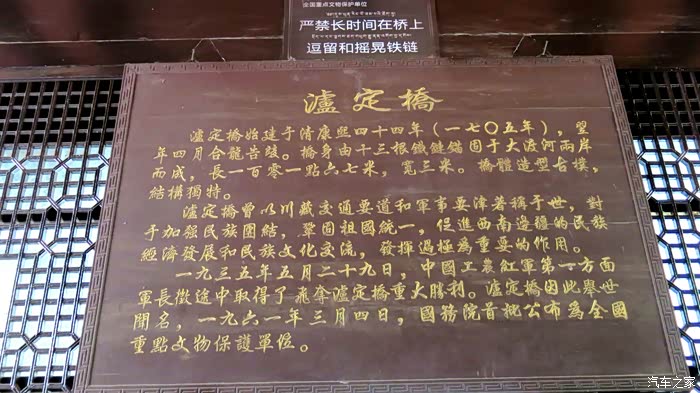 全国重点文物保护单位
严禁长时间在桥上
逗留和摇晃铁链
瀘定橋
瀘定橋始建于清康熙四十四年(一七〇五年),翌
年四月合龍告竣。橋身由十三根鐵鏈錨固于大渡河兩岸
而成,長一百零一點六七米,寬三米。橋體造型古樸,
結構獨特。
瀘定橋曾以川藏交通要道和軍事要津著稱于世,對
于加强民族團結,鞏固祖國統一,促進西南邊疆的民族
經濟發展和民族文化交流,發揮過極為重要的作用。
一九三五年五月二十九日,中國工農紅軍第一方面
軍長徵途中取得了飛奪瀘定橋重大勝利。瀘定橋因此舉世
聞名,一九六一年三月四日,國務院首批公布為全國
重點文物保護單位。
汽车之家